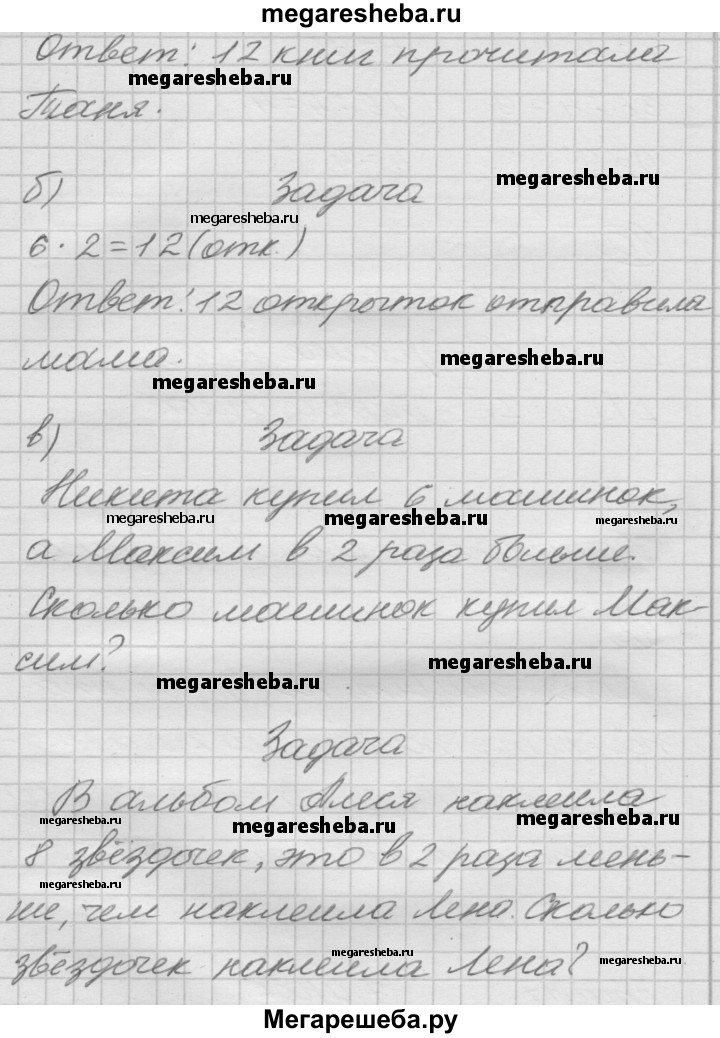 megaresheba.ru
Ответ: 12 книг прочитала
megaresheba.ru
Таня.
megaresheba.ru
б) Задача
megaresheba.ru
6 · 2 = 12 (отк.)
Ответ: 12 открыток отправила
мама.
megaresheba.ru
megaresheba.ru
в) Задача
Никита купил 6 машинок,
megaresheba.ru megaresheba.ru megaresheba.ru
а Максим в 2 раза больше.
Сколько машинок купил Мак-
сим?
megaresheba.ru
megaresheba.ru
Задача
В альбом Алеся наклеила
megaresheba.ru megaresheba.ru megaresheba.ru
8 звёздочек, это в 2 раза мень-
megaresheba.ru
ше, чем наклеила Лена. Сколько
звёздочек наклеила Лена?
megaresheba.ru megaresheba.ru
Мегарешеба.ру